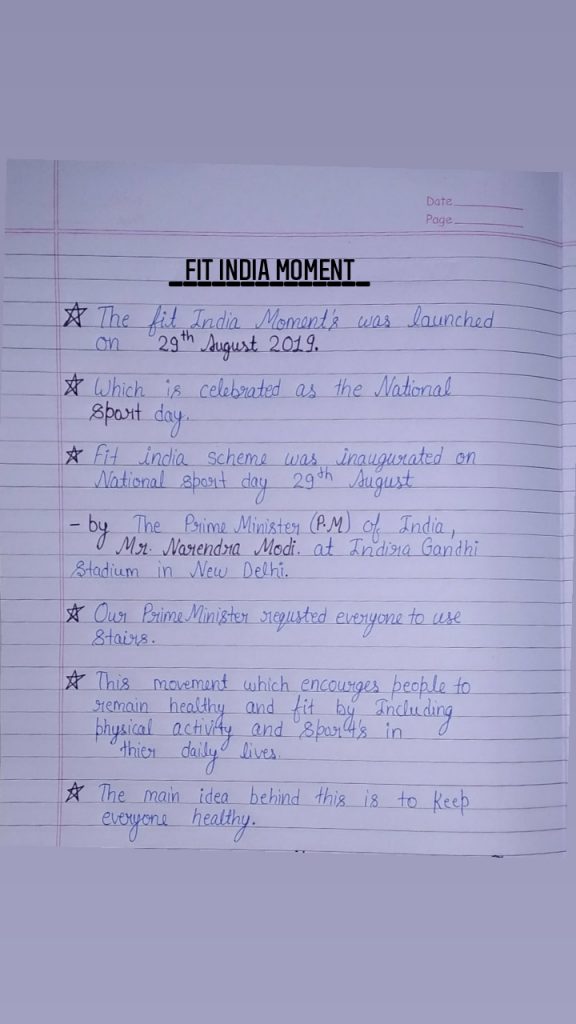 Date
Page
FIT INDIA MOMENT
☆ The fit India Moment's was launched
on 29th August 2019.
☆ Which is celebrated as the National
Sport day.
☆ Fit india scheme was inaugurated on
National sport day 29th August
- by The Prime Minister (P.M) of India,
Mr. Narendra Modi. at Indira Gandhi
Stadium in New Delhi.
☆ Our Prime Minister requsted everyone to use
Stairs.
☆ This movement which encourges people to
remain healthy and fit by Including
physical activity and Sport's in
thier daily lives.
☆ The main idea behind this is to Keep
everyone healthy.